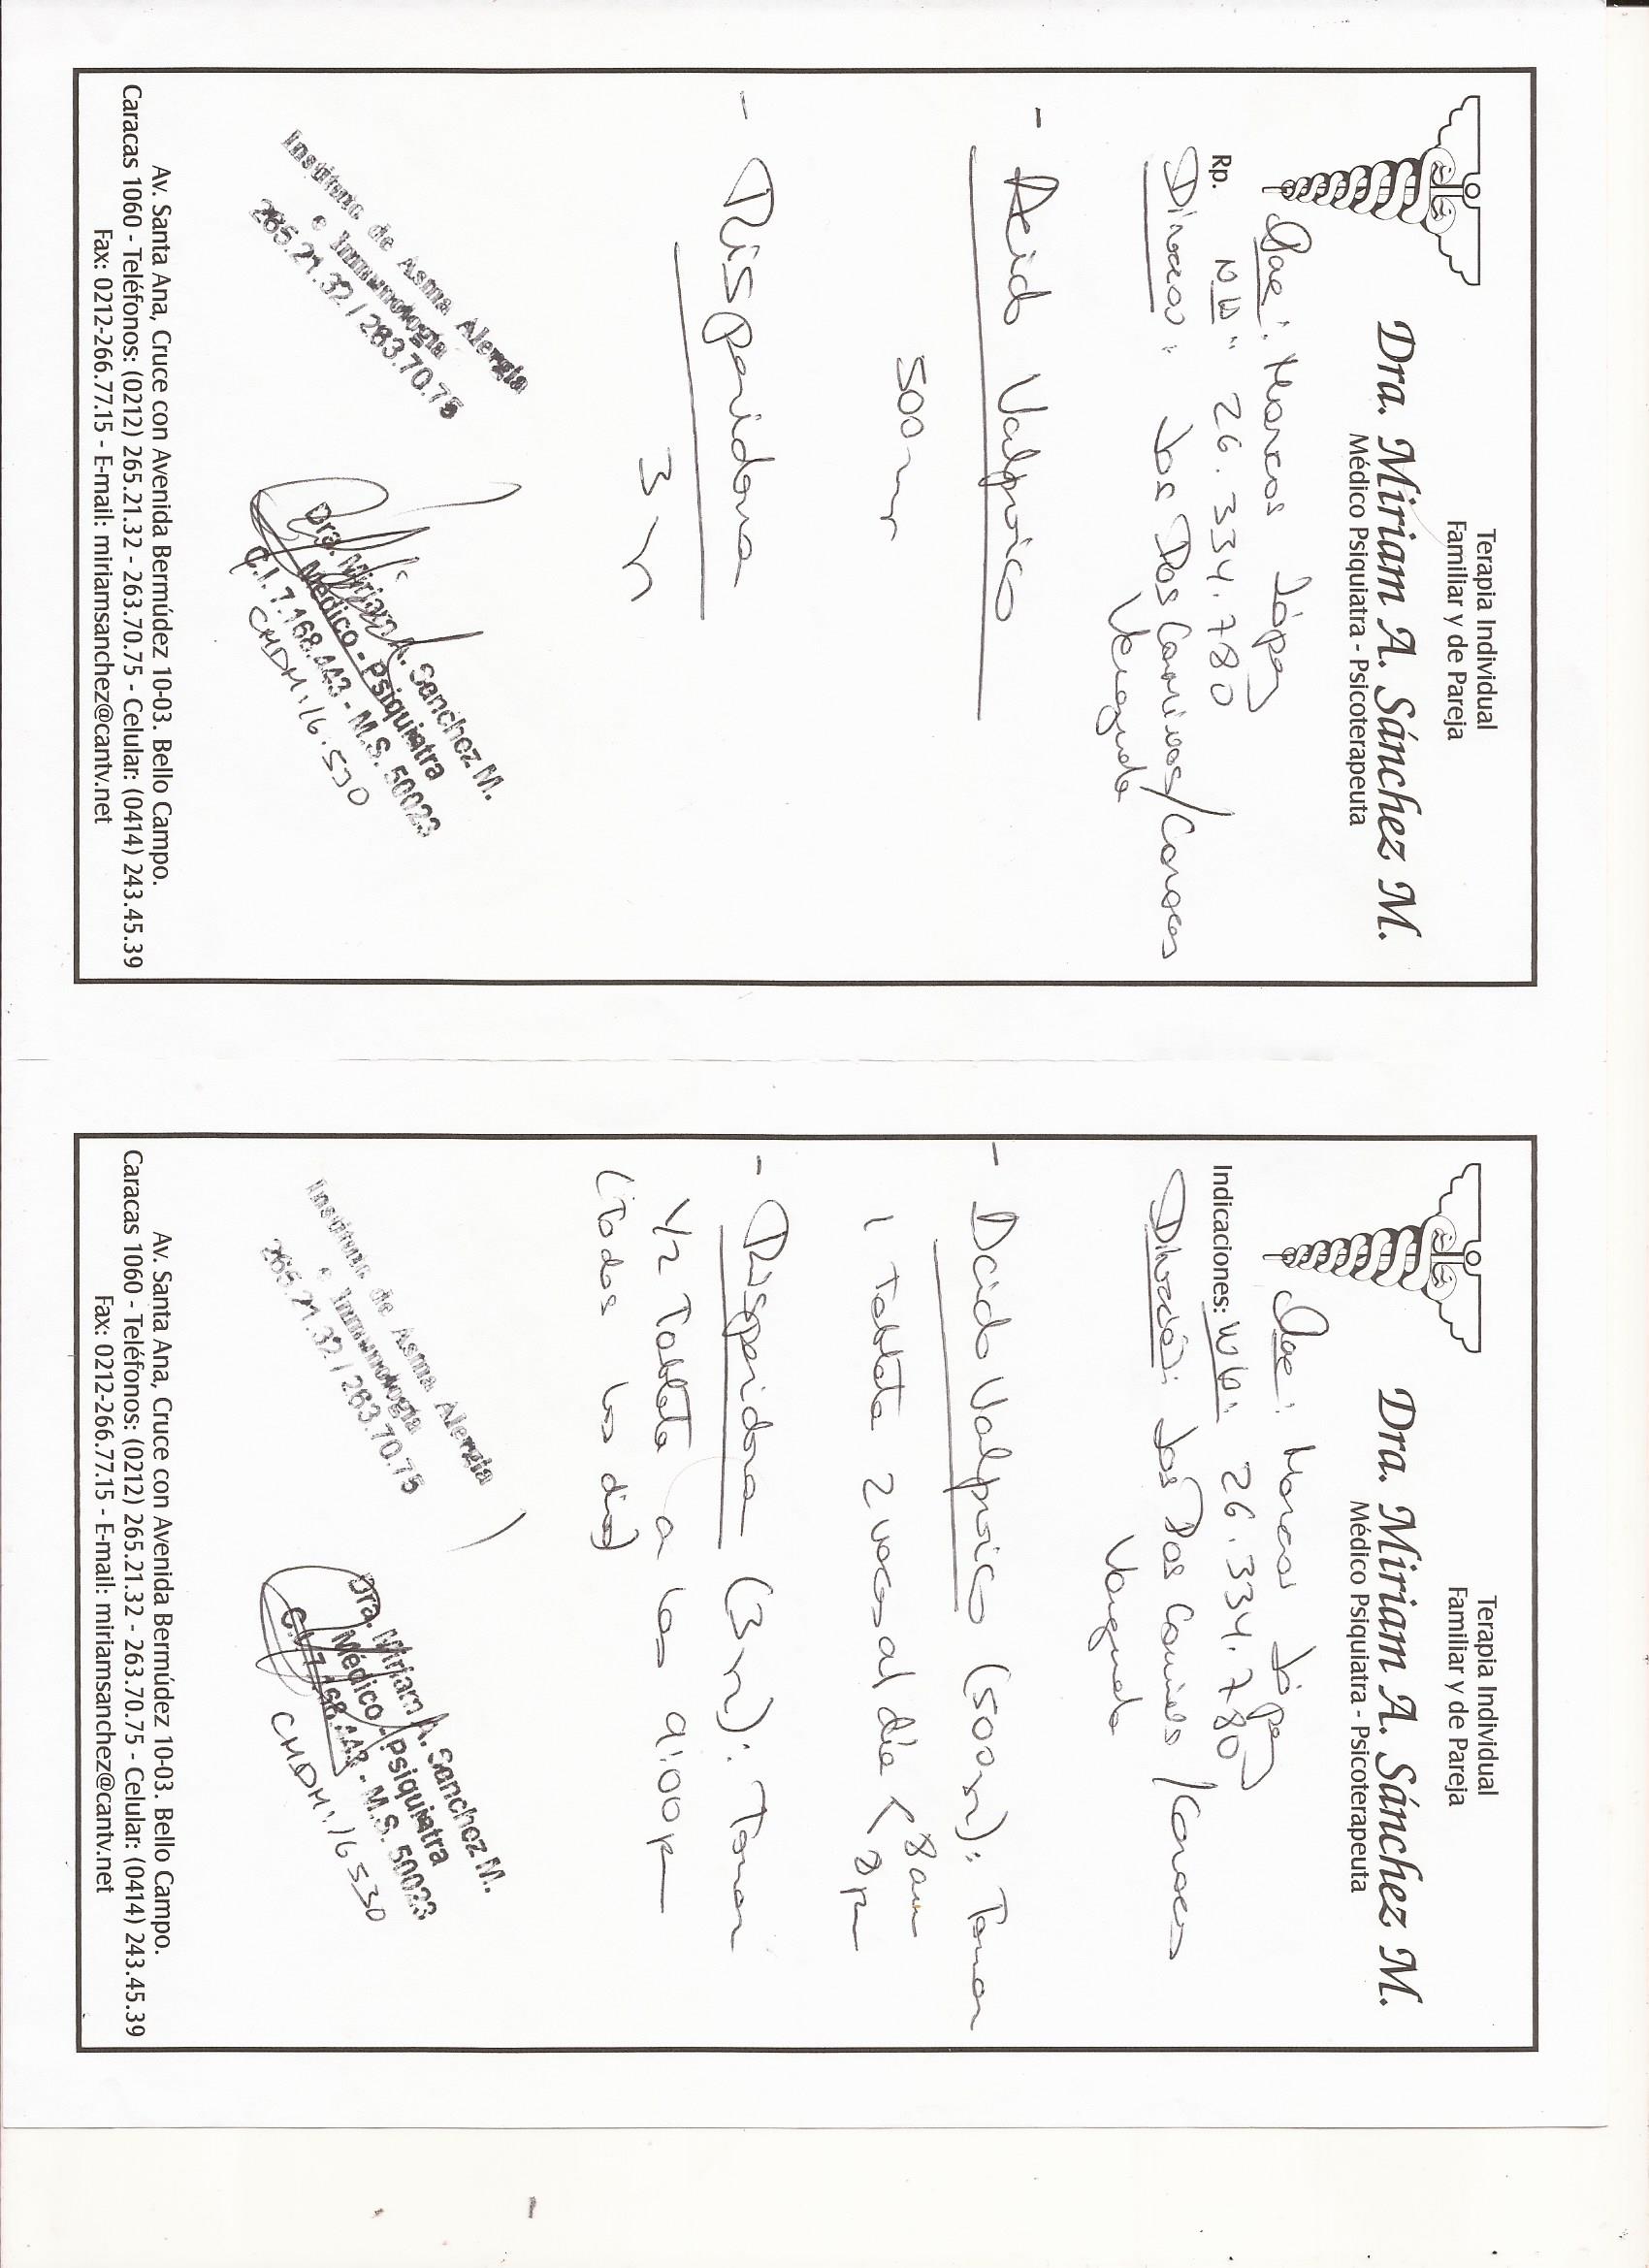 Terapia Individual
Familiar y de Pareja
Dra. Miriam A. Sánchez M.
Médico Psiquiatra - Psicoterapeuta
Marcos López
Rp.
26.334.780
Los Dos Caminos/Caracas
- Acido Valproico
500
- Risperidona
3
Instituto de Asma Alergia
e Inmunología
265.21.32 / 263.70.75
Dra. Miriam A. Sanchez M.
Médico - Psiquiatra
C.I. 7.168.443 - M.S. 50023
CMDM: 16.530
Av. Santa Ana, Cruce con Avenida Bermúdez 10-03. Bello Campo.
Caracas 1060 - Teléfonos: (0212) 265.21.32 - 263.70.75 - Celular: (0414) 243.45.39
Fax: 0212-266.77.15 - E-mail: miriamsanchez@cantv.net
Terapia Individual
Familiar y de Pareja
Dra. Miriam A. Sánchez M.
Médico Psiquiatra - Psicoterapeuta
Marcos López
Indicaciones: 26.334.780
Dirección: Los Dos Caminos/Caracas
- Acido Valproico (500): Tomar
1 Tableta 2 veces al día < 8 am
8 pm
- Risperidona (3): Tomar
1/2 Tableta a las 9:00 pm
(Todos los días)
Instituto de Asma Alergia
e Inmunología
265.21.32 / 263.70.75
Dra. Miriam A. Sanchez M.
Médico - Psiquiatra
C.I. 7.168.443 - M.S. 50023
CMDM: 16530
Av. Santa Ana, Cruce con Avenida Bermúdez 10-03. Bello Campo.
Caracas 1060 - Teléfonos: (0212) 265.21.32 - 263.70.75 - Celular: (0414) 243.45.39
Fax: 0212-266.77.15 - E-mail: miriamsanchez@cantv.net